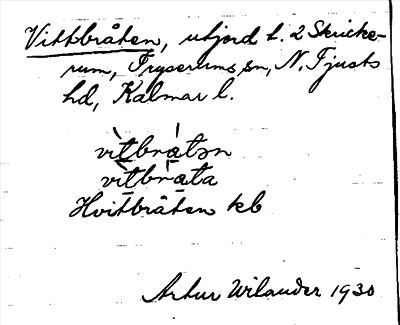 Vittbråten, utjord t. 2 Skricke-
rum, Tryserums sn, N. Tjusts
hd, Kalmar l.
vìtbrátən
vìtbràta
Hvitbråten kb
Artur Wilander 1930